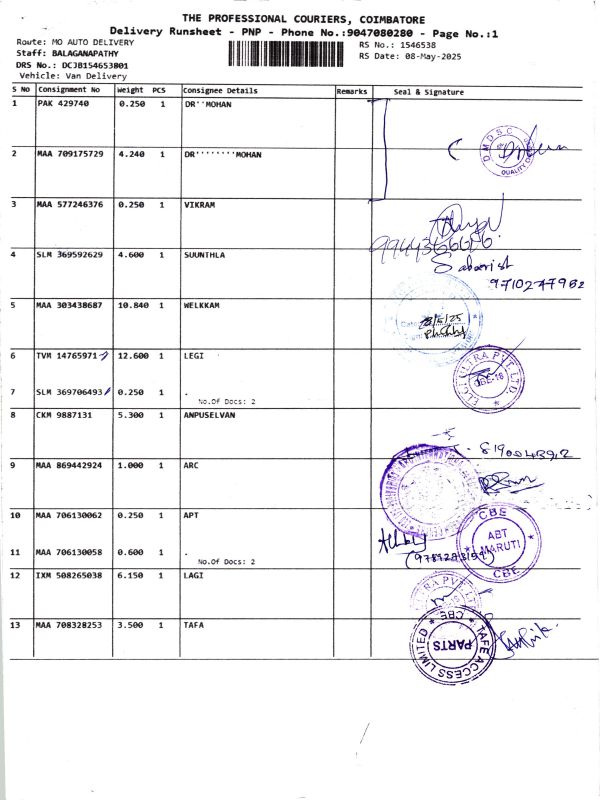 THE PROFESSIONAL COURIERS, COIMBATORE
Delivery Runsheet - PNP - Phone No.:9047080280 - Page No.:1
Route: MO AUTO DELIVERY
Staff: BALAGANAPATHY
DRS No.: DCJB154653801
Vehicle: Van Delivery
RS No.: 1546538
RS Date: 08-May-2025
S No Consignment No Weight PCS Consignee Details Remarks Seal & Signature
1 PAK 429740 0.250 1 DR''MOHAN
DMDSC
QUALITY
2 MAA 709175729 4.240 1 DR''''''''MOHAN
3 MAA 577246376 0.250 1 VIKRAM
4 SLM 369592629 4.600 1 SUUNTHLA
9710277982
5 MAA 303438687 10.840 1 WELKKAM
6 TVM 14765971 12.600 1 LEGI
ELGI ULTRA PVT. LTD
CBE-18
7 SLM 369706493 0.250 1 .
No.Of Docs: 2
8 CKM 9887131 5.300 1 ANPUSELVAN
9 MAA 869442924 1.000 1 ARC
10 MAA 706130062 0.250 1 APT
CBE
ABT MARUTI
CBE
11 MAA 706130058 0.600 1 .
No.Of Docs: 2
12 IXM 508265038 6.150 1 LAGI
13 MAA 708328253 3.500 1 TAFA
TAFE ACCESS LIMITED
CBE
PARTS